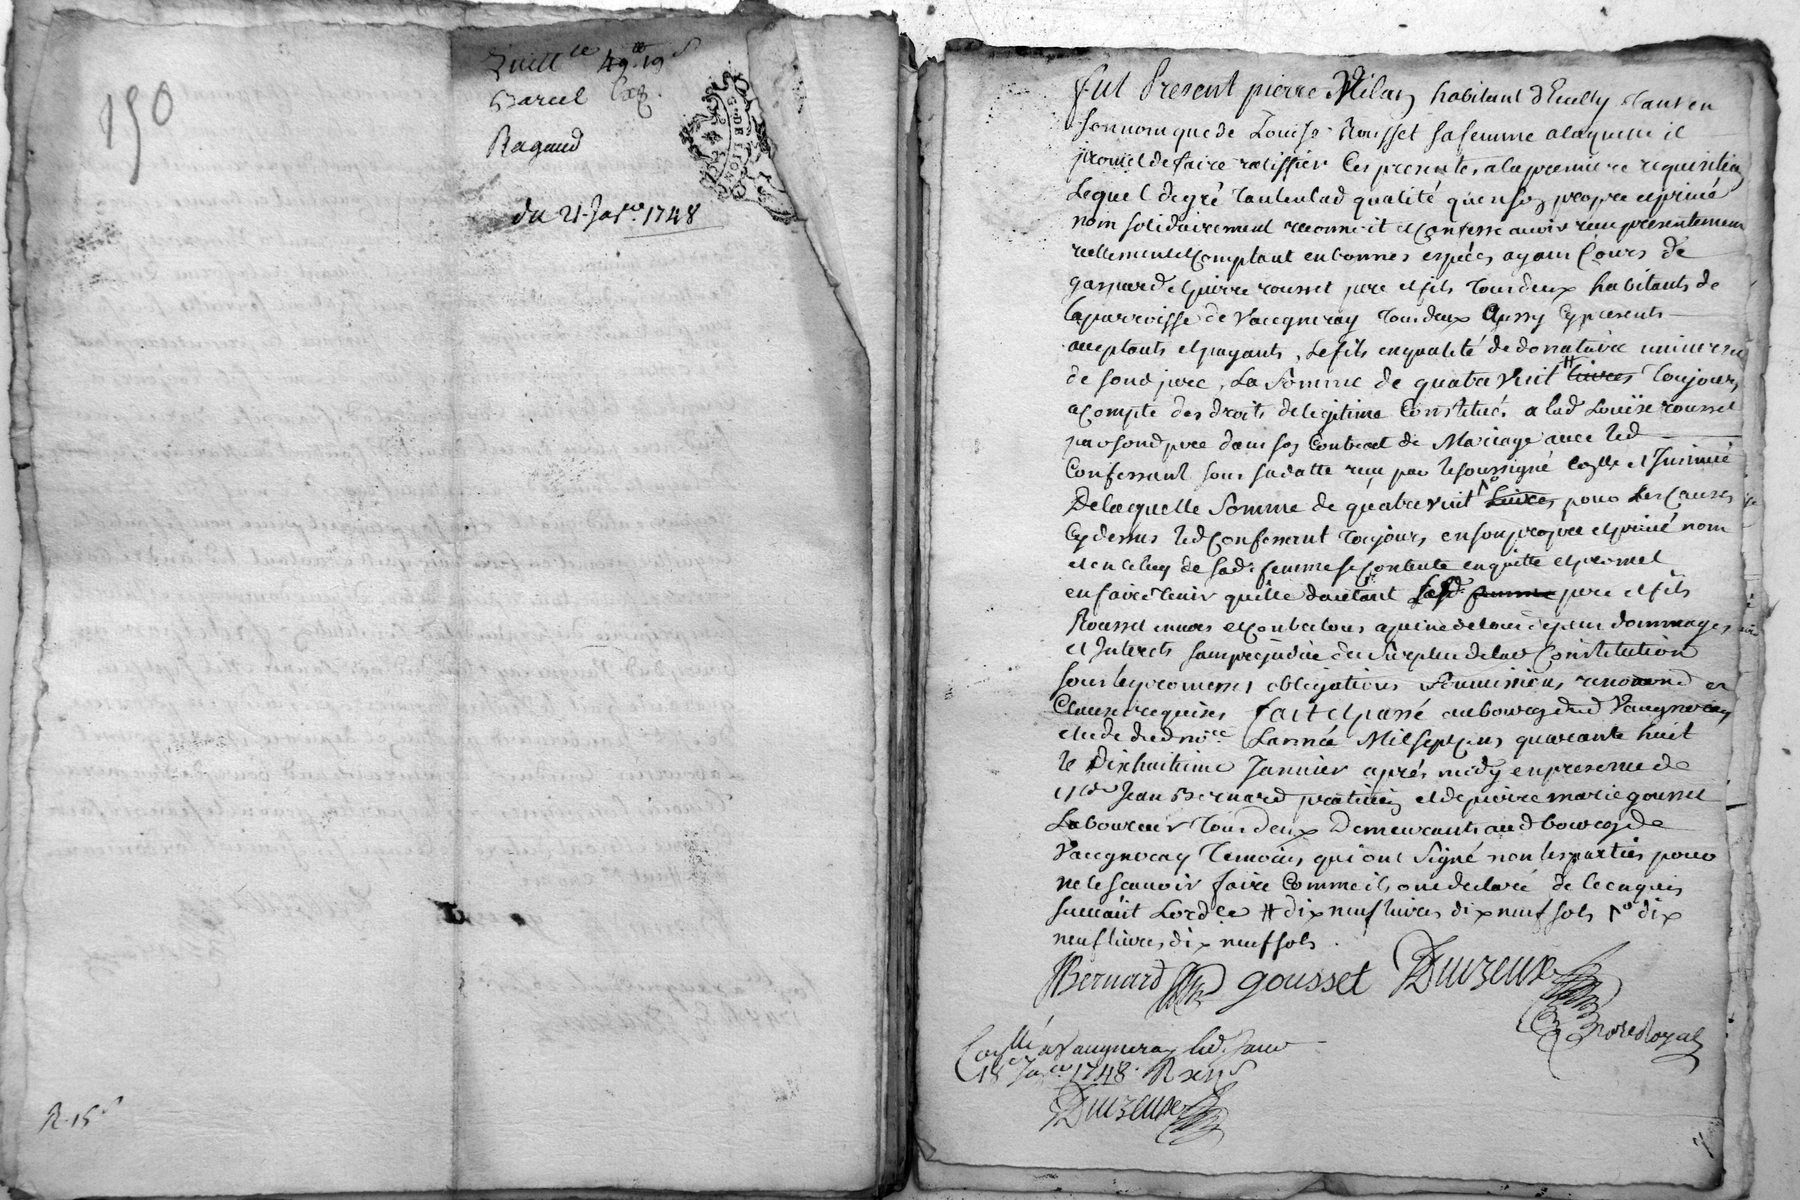 150
Quitt.ce 49tt 19s
Marcel
Ragaud
G. DE LION
du 21 Janv.er 1748
R. 15s
Fut Present pierre Milan habitant d'Ecully tant en
son nom que de Louise Rousset sa femme a laquelle il
promet de faire ratiffier Ces presentes, a la premiere requisition
Lequel de gré tant en lad qualité qu'en son propre et privé
nom solidairement reconnoit et Confesse avoir reçu presentement
reellement et Comptant en bonnes espéces ayant Cours de
gaspard et pierre rousset pere et fils tous deux habitants de
la parroisse de Vaugneray tous deux Aussy Cy presents
acceptants et payants, Le fils en qualité de donataire universel
de sond pere, La Somme de quatre vint # livres toujours
a Compte des droits de legitime Constitués a lad Louïse rousset
par sond pere dans son Contract de Mariage avec led
Confessant sous sa datte reçu par le soussigné Con.llé et Insinué
De laquelle Somme de quatre vint livres pour Les Causes
Cy dessus led Confessant toujours en son propre et privé nom
et en Celuy de sad.e femme se Contente en quitte et promet
en faire tenir quitte d'autant lesd. femme pere et fils
Rousset envers et Contre tous a peine de tous dépens dommages
et Interets sans préjudice du Surplus de lad Constitution
sous les promesses obligations soumissions renon et
Clauses requises fait et passé au bourg dud Vaugneray
étude dud no.re L'année Mil sept Cens quarante huit
le Dixhuitieme Janvier aprés midy en presence de
Jean Bernard praticien et de pierre marie gousset
Laboureur tous deux Demeurants aud bourg de
Vaugneray temoins qui ont Signé non les parties pour
ne le sçavoir faire Comme ils ont declaré de ce enquis
suivant L'ord.ce # dix neuf livres dix neuf sols dix
neuf livres dix neuf sols.
Bernard gousset Duvzeux
no.re Royal
Con.llé a Vaugneray led. Jour
18e Janv.er 1748. R
Duvzeux